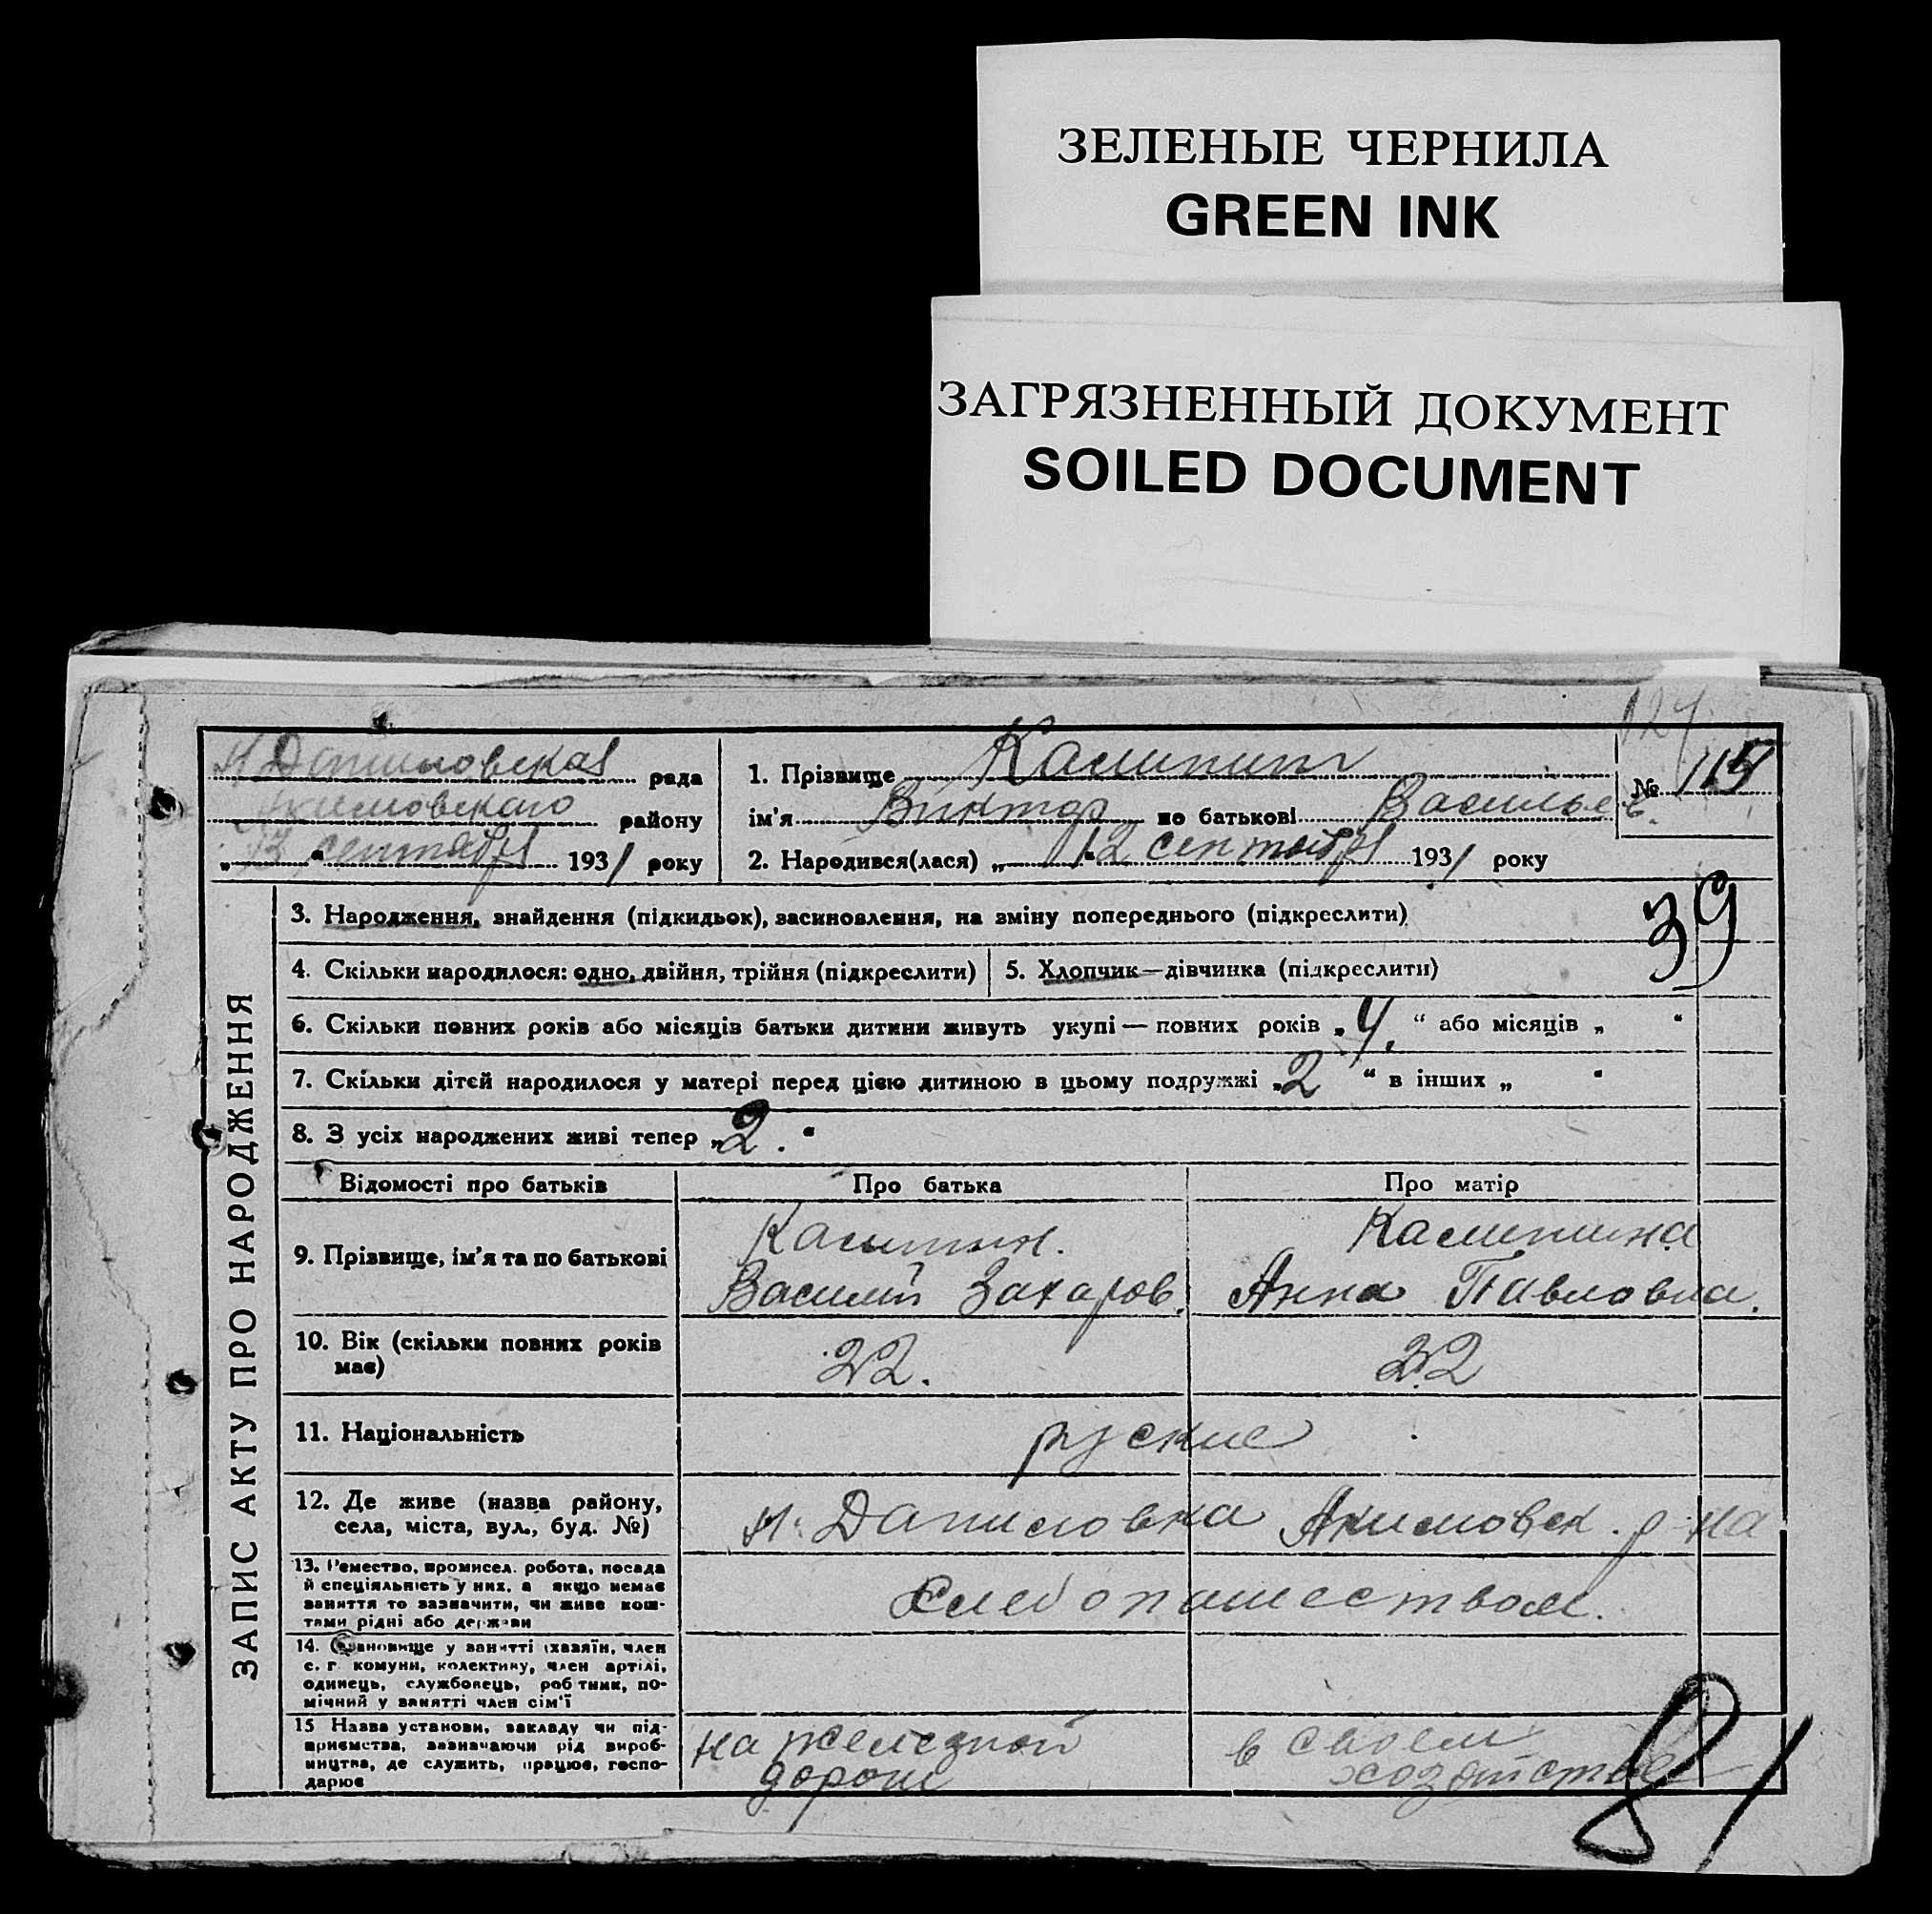 ЗЕЛЕНЫЕ ЧЕРНИЛА
GREEN INK
ЗАГРЯЗНЕННЫЙ ДОКУМЕНТ
SOILED DOCUMENT
124
Н Даниловская рада
Якимовского району
„13“ сентября 1931 року
1. Прізвище Калинин
ім'я Виктор по батькові Васильев.
№ 115
2. Народився(лася) „12 сентября 1931 року
39
ЗАПИС АКТУ ПРО НАРОДЖЕННЯ
3. Народження, знайдення (підкидьок), засиновлення, на зміну попереднього (підкреслити)
4. Скільки народилося: одно, двійня, трійня (підкреслити)
5. Хлопчик—дівчинка (підкреслити)
6. Скільки повних років або місяців батьки дитини живуть укупі — повних років „4.“ або місяців „ “
7. Скільки дітей народилося у матері перед цією дитиною в цьому подружжі „2“ в інших „ “
8. З усіх народжених живі тепер „2.“
Відомості про батьків Про батька Про матір
9. Прізвище, ім'я та по батькові
Калинин.
Василий Захаров.
Калинина
Анна Павловна.
10. Вік (скільки повних років
має)
22.
22
11. Національність
руские
12. Де живе (назва району,
села, міста, вул., буд. №)
Н. Даниловка Якимовск. р-на
13. Ремество, промисел. робота, посада
й спеціяльність у них, а якщо немає
заняття то зазначити, чи живе кош-
тами рідні або держави
хлебопашеством.
14. Становище у занятті (хазяїн, член
с. г. комуни, колективу, член артілі,
одинець, службовець, робітник, по-
мічний у занятті член сім'ї
15 Назва установи, закладу чи під-
приємства, зазначаючи рід вироб-
ництва, де служить, працює, госпо-
дарює
на железной
дороге
в своем
хозяйстве
81